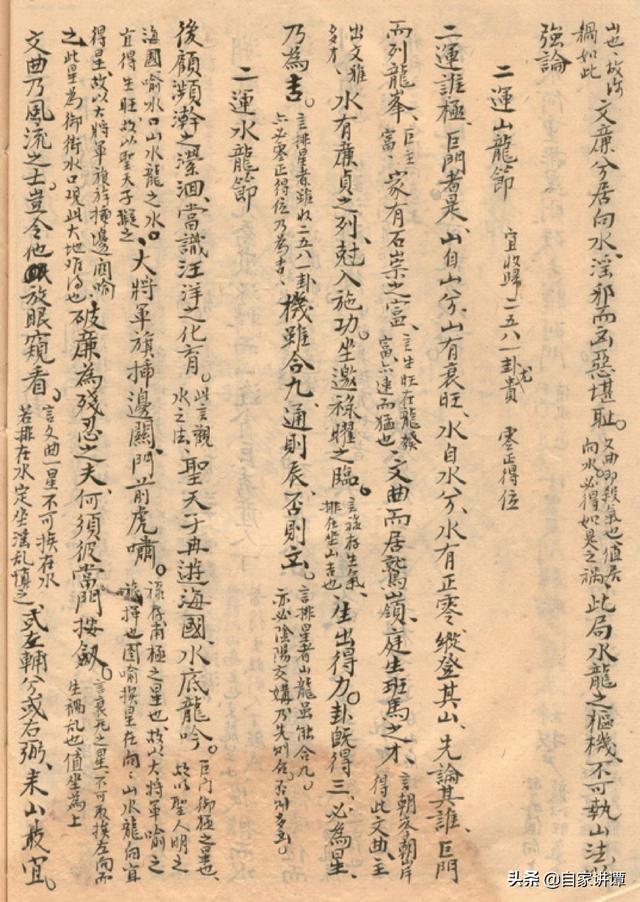 岂也故得
禍如此 文廉兮居向水、淫邪而凶惡堪恥。文曲即殺氣也值居
向水必得如是之禍 此局水龍之樞機、不可執山法以
強論
二運山龍節 宜收歸二五八一卦尤貴 零正得位
二運誰極、巨門者是、山自山兮、山有衰旺、水自水兮、水有正零、縱登其山、先論其誰、巨門
而列龍峯、巨主富、家有石崇之富、言生旺在龍發
富亦速而猛也 文曲而居鷲嶺、庭生班馬之才、言朝案朝岸
得此文曲、主
出文雅
之才、水有廉貞之列、尅入施功。坐邀祿曜之臨。言祿存生氣、
排在坐山吉也 生出得力。卦既得三、必為星、
乃為吉。言排星者雖收二五八一卦
亦必零正得位乃為吉、機雖合九、通則辰、否則立、言排星者山龍虽能合九。
亦必陰陽交媾乃先則合、
二運水龍節
後顧瀕澣之瀠洄、當識汪洋之化育。此言觀
水之法、聖天子再遊海國、水底龍吟。巨門御極之星也、
故以聖人明之
海國喻水口山水龍之水。
宜得生旺故以聖天子擬之、大將軍旗掃邊關、門前虎嘯。祿存南極之星也故以大將軍喻之
旗揮也國喻挨星在向、山水龍向宜
得星、故以大將軍旗旂掃邊關喻
之此星為御街水口現此大地 破廉為殘忍之夫、何須彼當門按劍。言衰死之星不可取挨左向而
生禍乱也值坐為上
文曲乃風流之士、豈令他眠放眼窺看。言文曲一星不可挨在水
若排在水定坐淫乱慎之、式左輔兮或右弼、來山最宜。
头条 @自家讲谭